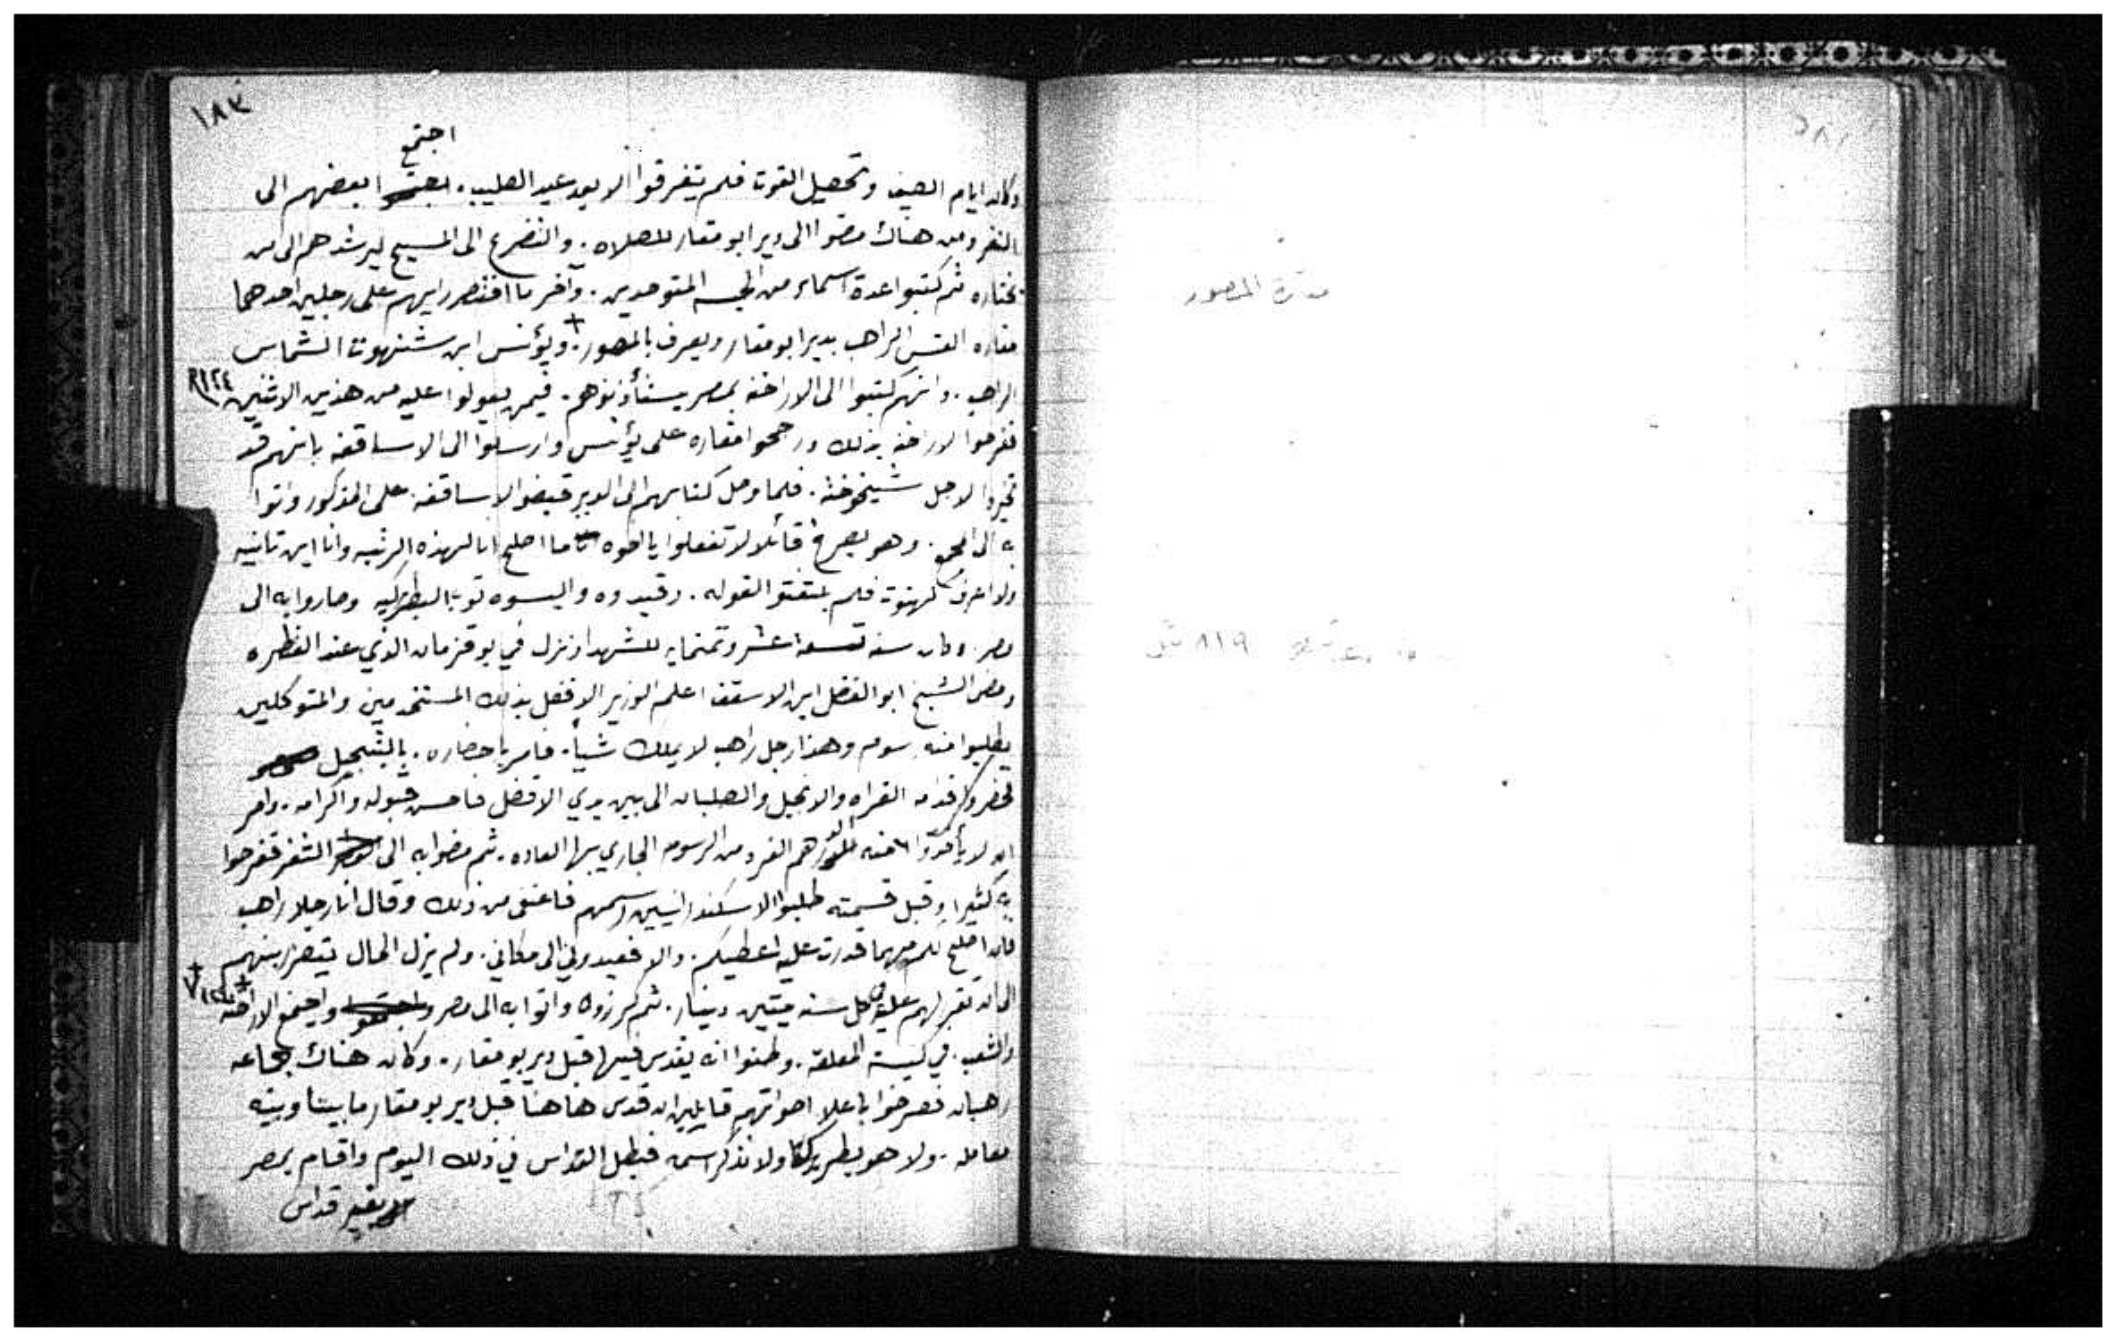 ١٨٣
اجتمع
وكان ايام الصيف وتحصيل القوت فلم يتفرقوا الا بعد عيد الصليب. بعضهم الى
الثغر ومن هناك مضوا الى دير ابو مقار للصلاه. والتضرع الى المسيح ليرشدهم الى من
يختاره ثم كتبوا عدة اسماء من المتوحدين. وآخر ما اقتصر رايهم على رجلين احدهما
مقاره القس الراهب بدير ابو مقار ويعرف بالمصور. ويؤنس ابن سنهوت الشماس
الراهب. وانهم كتبوا الى الاراخنه بمصر يستأذنوهم. فيمن يعولوا عليه من هذين الاثنين
R ١٢٤
ففرحوا الاراخنه بذلك ورجحوا مقاره على يؤنس وارسلوا الى الاساقفه بانهم قد
تخيروا لاجل شيخوخته. فلما وصل كتابهم الى الدير قبضوا الاساقفه على المذكور واتوا
به الى المجمع. وهو يصرخ قائلا لا تفعلوا يا اخوه ما اصلح انا لهذه الرتبه وانا ابن ثانيه
ولا اعرف كهنوت فلم يلتفتوا لقوله. وقيدوه والبسوه ثوب البطريركيه وصاروا به الى
مصر. وكان سنه تسعة عشر وثمنمايه للشهدا ونزل في بو قزمان الذي عند القنطره
ومضى الشيخ ابو الفضل ابن الاسقف اعلم الوزير الافضل بذلك المستخدمين والمتوكلين
يطلبوا منه رسوم وهذا رجل راهب لا يملك شيأ. فامر باحضاره. بالتبجيل
فحضر وقدامه القراه والانجيل والصلبان الى بين يدي الافضل فاحسن قبوله واكرامه. وامر
ان لا يأخذوا منه الدرهم الفرد من الرسوم الجاري بها العاده. ثم مضوا به الى الثغر ففرحوا
به كثيرا وقبل قسمته طلبوا الاسكندرانيين رسمهم فاعتفى من ذلك وقال انا رجلا راهب
فان اصلح لكم مهما قدرت عليه اعطيكم. والا فعيدوني الى مكاني. ولم يزل الحال يتقرر بينهم
الى ان تقرر لهم عليه في كل سنه ميتين دينار. ثم كرزوه واتوا به الى مصر واجتمع الاراخنه
V ١٢٤
والشعب. في كنيسة المعلقة. وظنوا انه يقدس فيها قبل دير بو مقار. وكان هناك جماعه
رهبان فصرخوا باعلا اصواتهم قايلين ان قدس هاهنا قبل دير بو مقار ما بيننا وبينه
معامله. ولا هو بطريركنا ولا نذكر اسمه فبطل القداس في ذلك اليوم واقام بمصر
بغير قداس
مقارة المصور
٨١٩